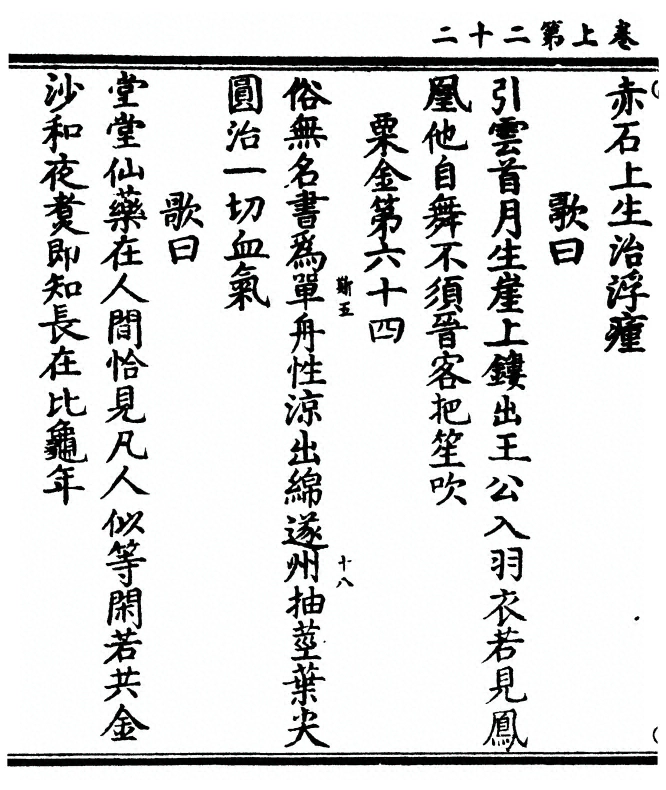 卷上第二十二
赤石上生治浮瘇
歌曰
引雲首月生崖上鏤出王公入羽衣若見鳳
凰他自舞不須晉客把笙吹
栗金第六十四
斯五
十八
俗無名書爲單舟性涼出綿遂州抽莖葉尖
圓治一切血氣
歌曰
堂堂仙藥在人間恰見凡人似等閑若共金
沙和夜煑即知長在比龜年